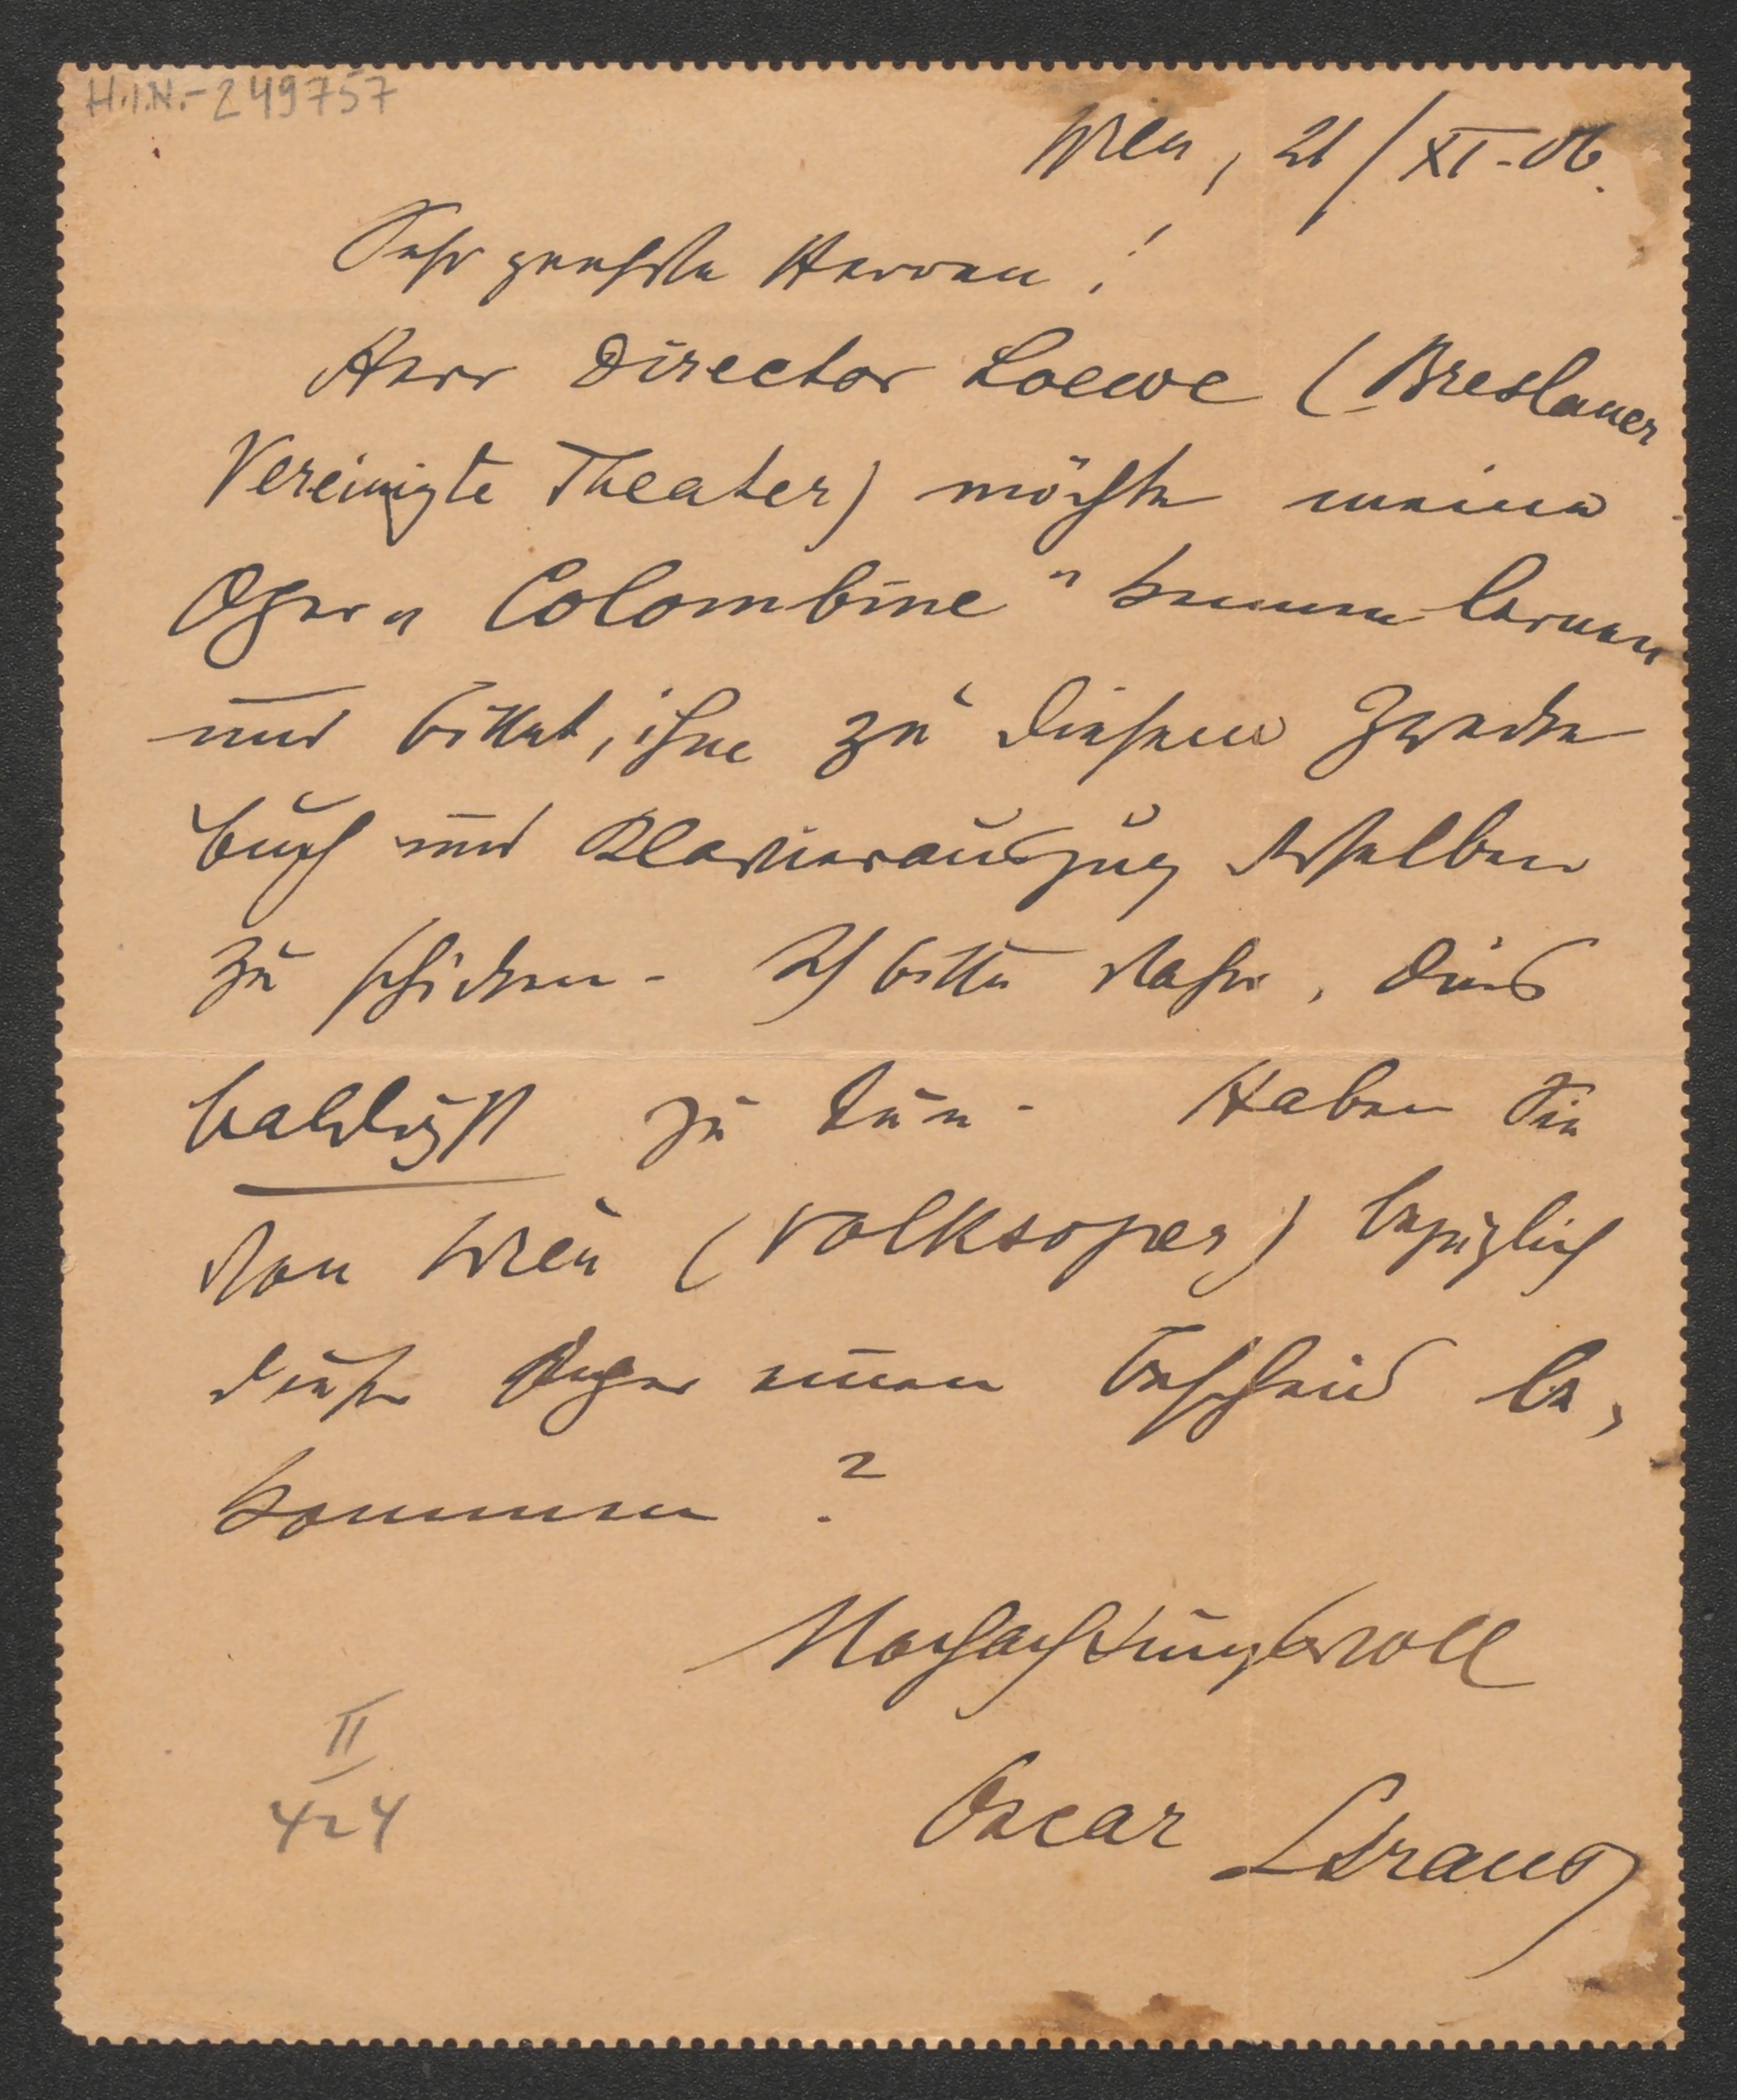 H.I.N.-249757
Wien, 21/XI-06.
Sehr geehrte Herren!
Herr Director Loewe (Breslauer
Vereinigte Theater) möchte meine
Oper „Colombine“ kennen lernen
und bittet, ihm zu diesem Zwecke
Buch und Klavierauszug derselben
zu schicken. Ich bitte sehr, dies
baldigst zu tun. Haben Sie
von Wien (Volksoper) bezüglich
dieser Oper einen Bescheid be-
kommen?
Hochachtungsvoll
Oscar Straus
II
424